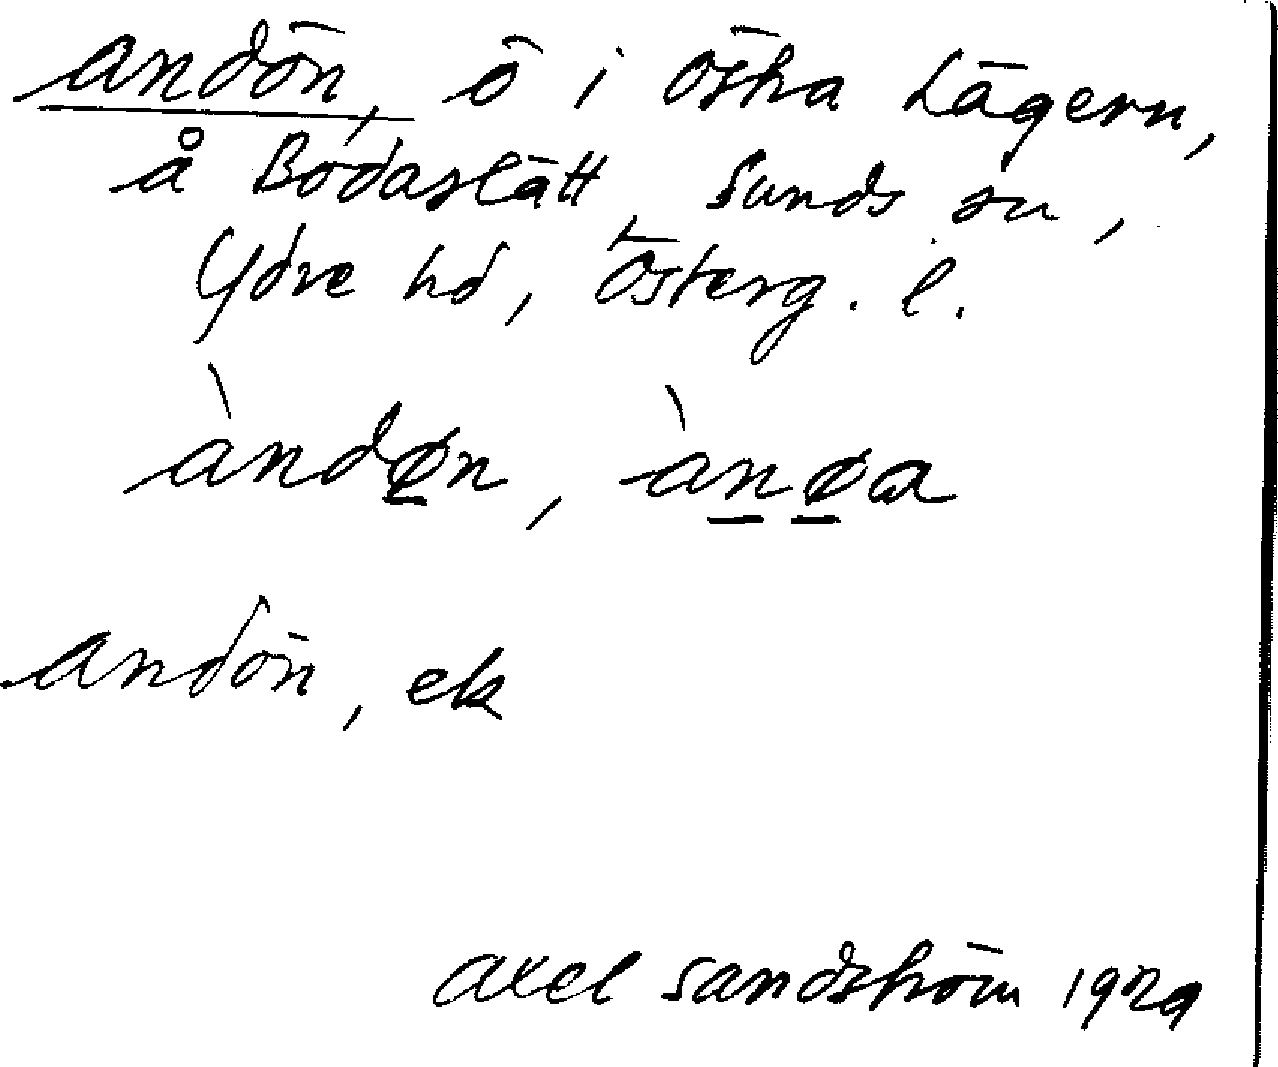 andön, ö i Östra Lägern,
å Bodaslätt, Sunds sn,
Ydre hd, Österg. l.
àndøn, ànøa
andön, ek
Axel Sandström 1929